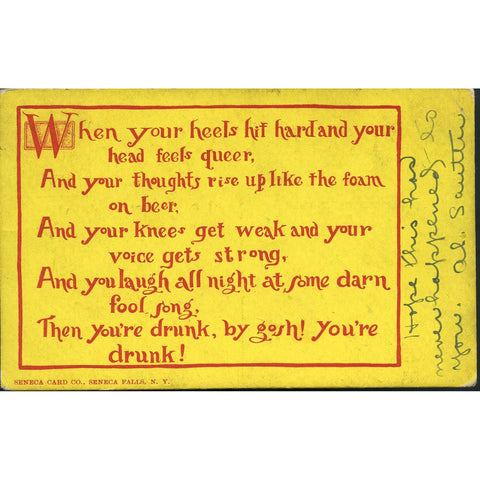 When your heels hit hard and your
head feels queer,
And your thoughts rise up like the foam
on beer,
And your knees get weak and your
voice gets strong,
And you laugh all night at some darn
fool song,
Then you're drunk, by gosh! You're
drunk!
SENECA CARD CO., SENECA FALLS, N. Y.
Hope this has
never happened to
you. Al.